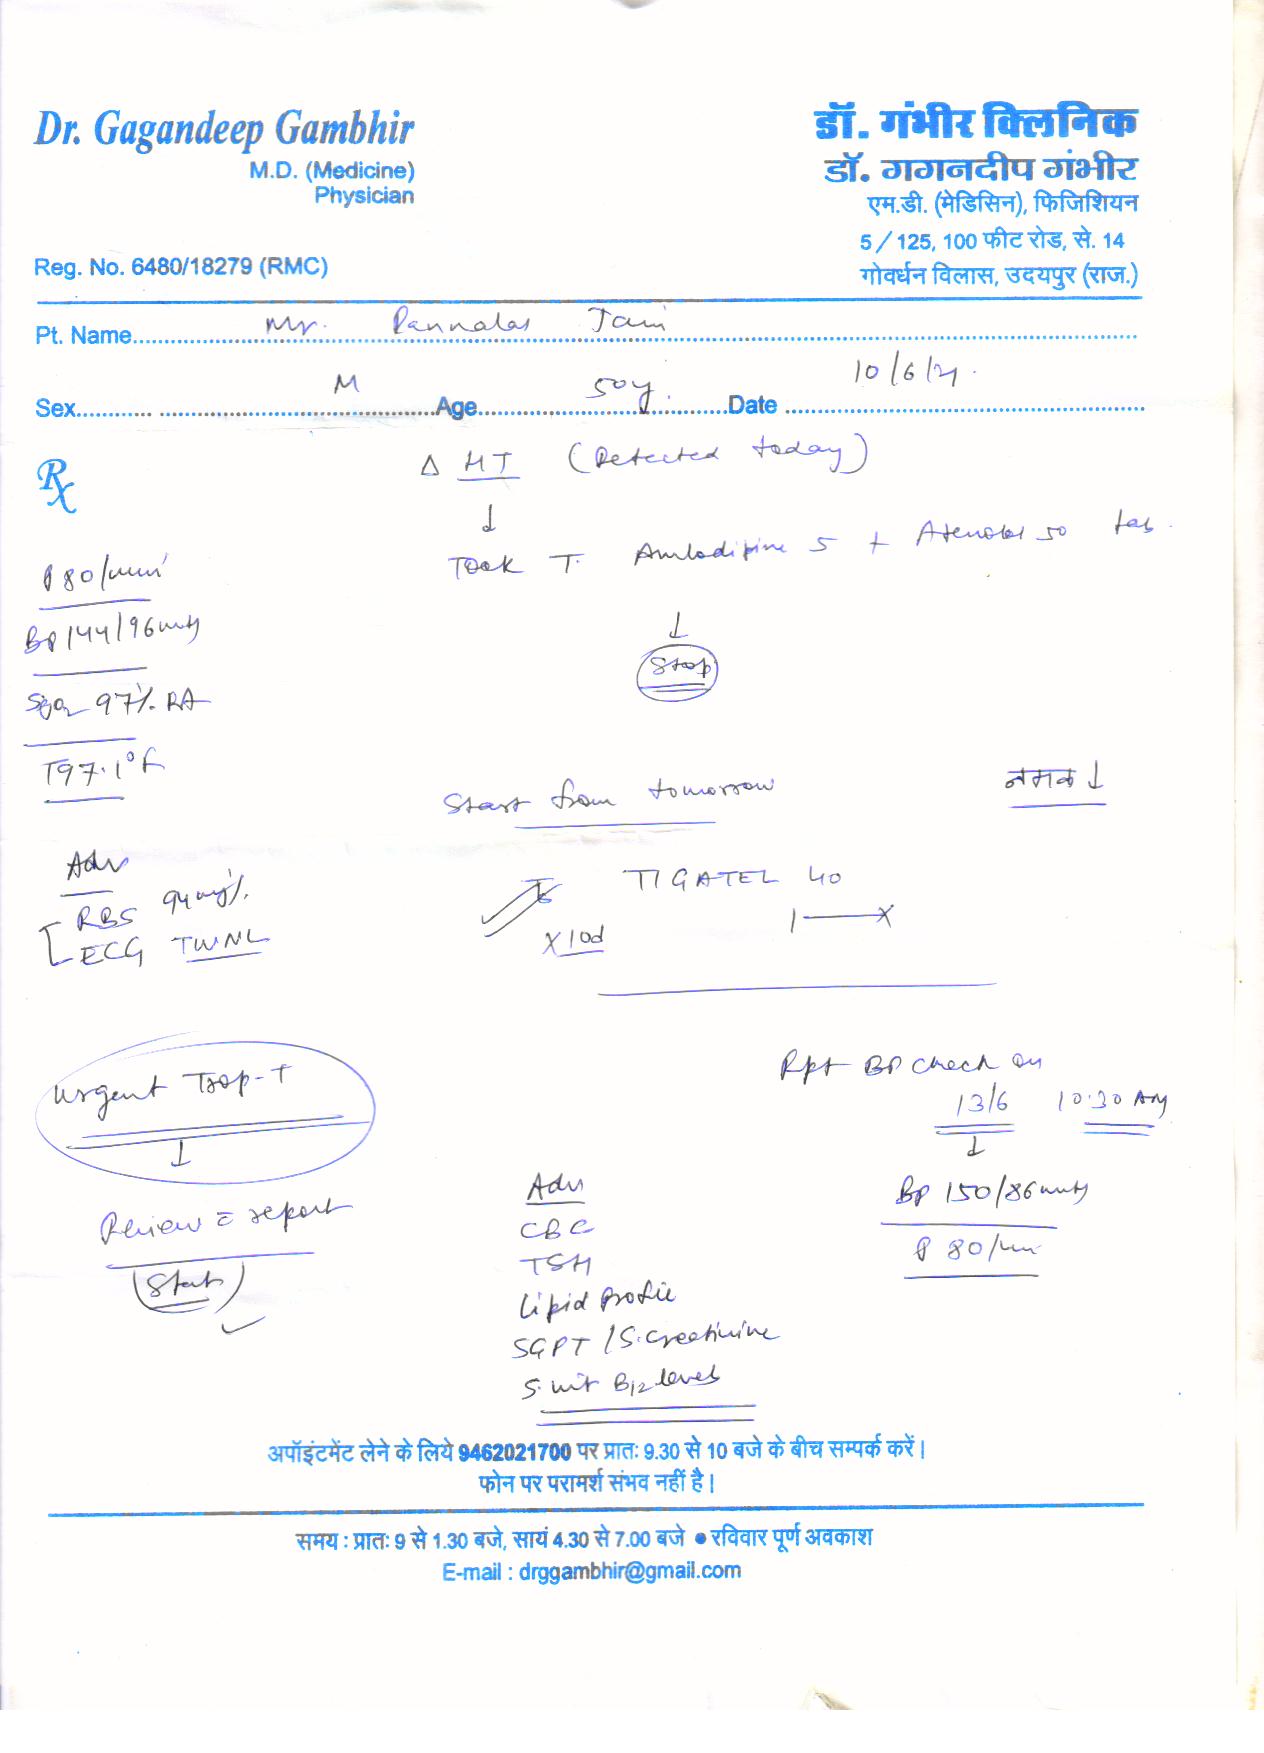 Dr. Gagandeep Gambhir
M.D. (Medicine)
Physician
Reg. No. 6480/18279 (RMC)
डॉ. गंभीर क्लिनिक
डॉ. गगनदीप गंभीर
एम.डी. (मेडिसिन), फिजिशियन
5 / 125, 100 फीट रोड, से. 14
गोवर्धन विलास, उदयपुर (राज.)
Pt. Name Mr. Pannalal Jain
Sex M Age 50y. Date 10/6/21.
Rx
Δ HT (Detected today)
↓
Took T. Amlodipine 5 + Atenolol 50 tab.
↓
Stop
P 80/min
BP 144/96 mmHg
SpO2 97% RA
T 97.1°F
Start from tomorrow
नमक ↓
Adv
RBS 94mg%
ECG TWNL
TIGATEL 40
1——x
x 10d
Urgent Trop-T
↓
Review c report
Start
Rpt BP check on
13/6 10:30 AM
↓
BP 150/86 mmHg
P 80/min
Adv
CBC
TSH
Lipid profile
SGPT / S. Creatinine
S. vit B12 level
अपॉइंटमेंट लेने के लिये 9462021700 पर प्रातः 9.30 से 10 बजे के बीच सम्पर्क करें।
फोन पर परामर्श संभव नहीं है।
समय : प्रातः 9 से 1.30 बजे, सायं 4.30 से 7.00 बजे ● रविवार पूर्ण अवकाश
E-mail : drggambhir@gmail.com